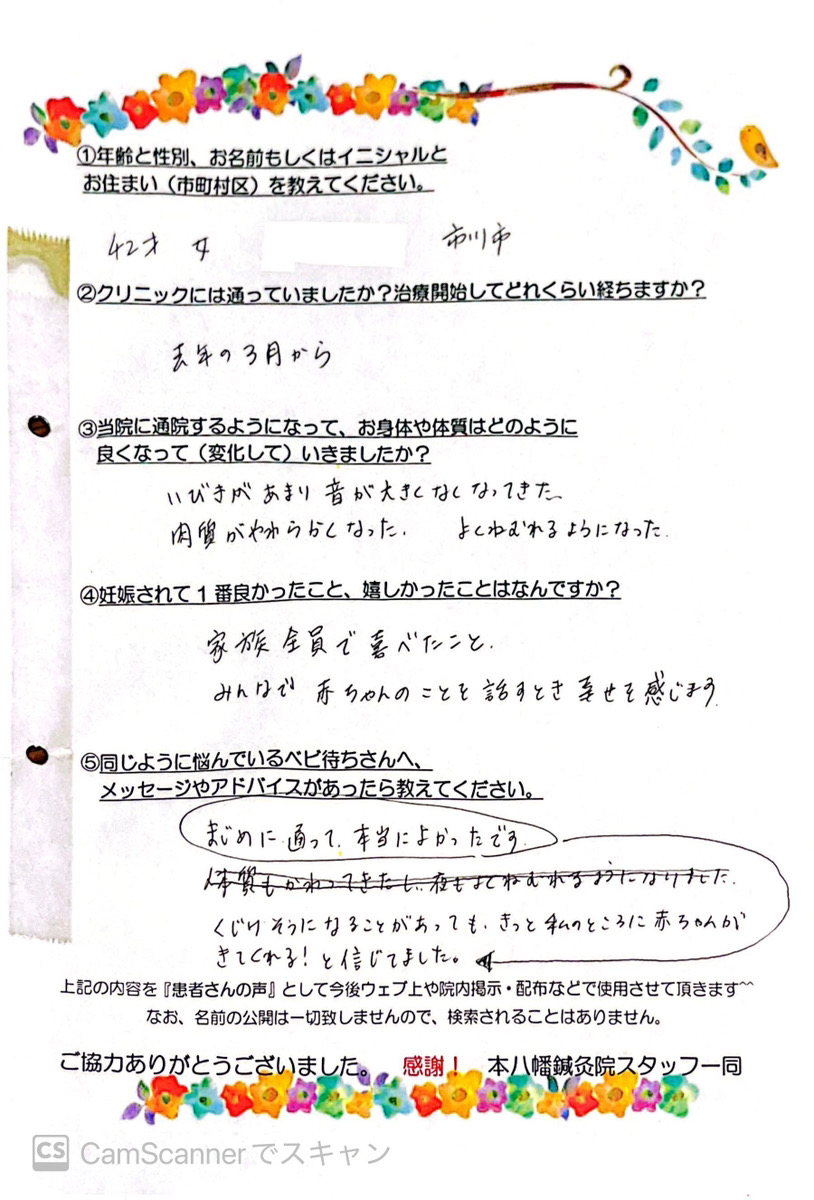 ①年齢と性別、お名前もしくはイニシャルと
お住まい（市町村区）を教えてください。
42才 女 市川市
②クリニックには通っていましたか？治療開始してどれくらい経ちますか？
去年の3月から
③当院に通院するようになって、お身体や体質はどのように
良くなって（変化して）いきましたか？
いびきが あまり 音が大きくなくなってきた
肉質がやわらかくなった. よくねむれるようになった.
④妊娠されて１番良かったこと、嬉しかったことはなんですか？
家族全員で喜べたこと.
みんなで 赤ちゃんのことを 話すとき 幸せを感じます
⑤同じように悩んでいるベビ待ちさんへ、
メッセージやアドバイスがあったら教えてください。
まじめに 通って、本当によかったです.
体質もかわってきたし、夜もよくねむれるようになりました.
くじけそうになることがあっても、きっと 私のところに赤ちゃんが
きてくれる！と信じてました。
上記の内容を『患者さんの声』として今後ウェブ上や院内掲示・配布などで使用させて頂きます^^
なお、名前の公開は一切致しませんので、検索されることはありません。
ご協力ありがとうございました。 感謝！ 本八幡鍼灸院スタッフ一同
CS CamScannerでスキャン